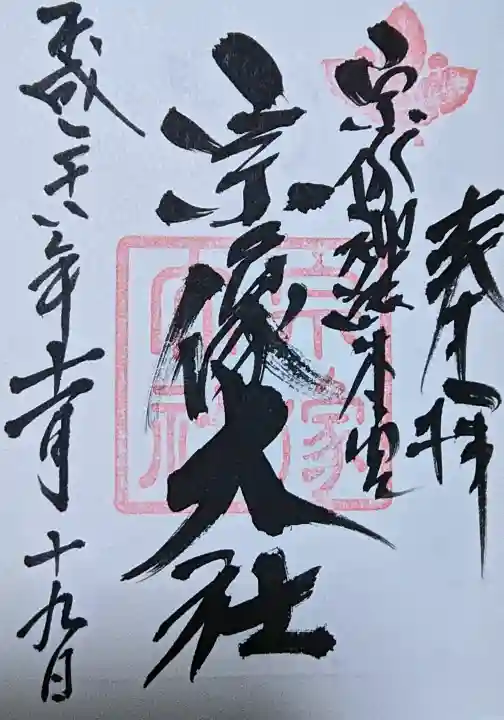 奉拝
宗像大社
平成二十八年十一月十九日
宗像
大社